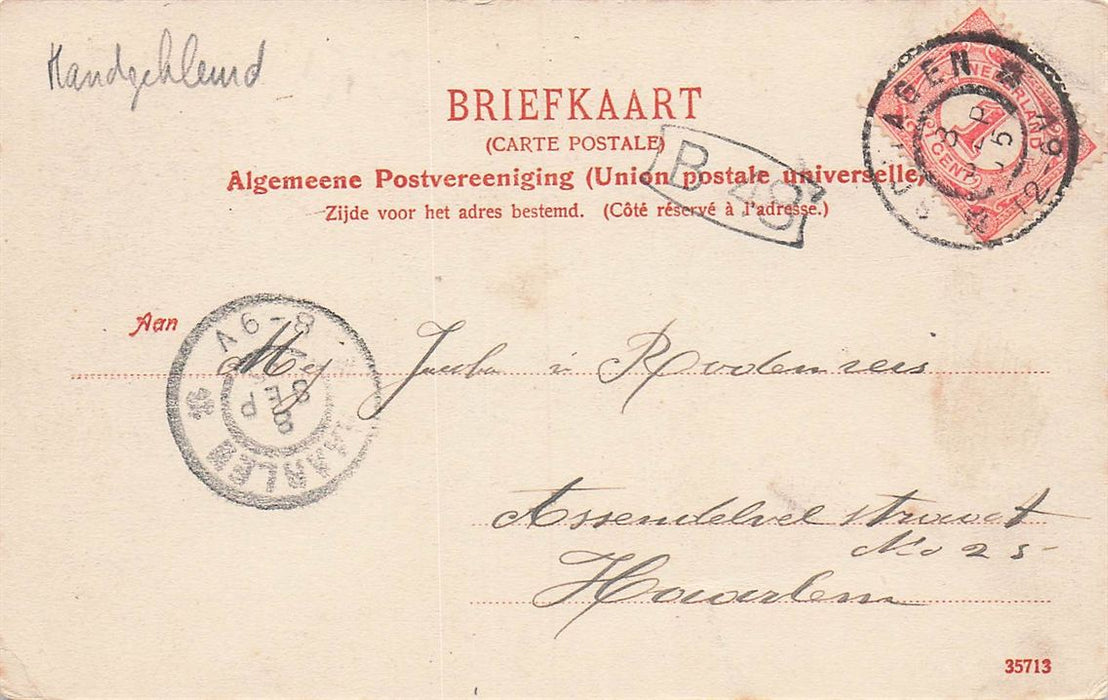 Handgekleurd
BRIEFKAART
(CARTE POSTALE)
Algemeene Postvereeniging (Union postale universelle)
Zijde voor het adres bestemd. (Côté réservé à l'adresse.)
B 48
NEDERLAND
1
CENT
8 SEP
Aan
HAARLEM
8 SEP
A 6-8
Mej Jacoba v Roodenreis
Assendelver straat
No 25
Haarlem
35713